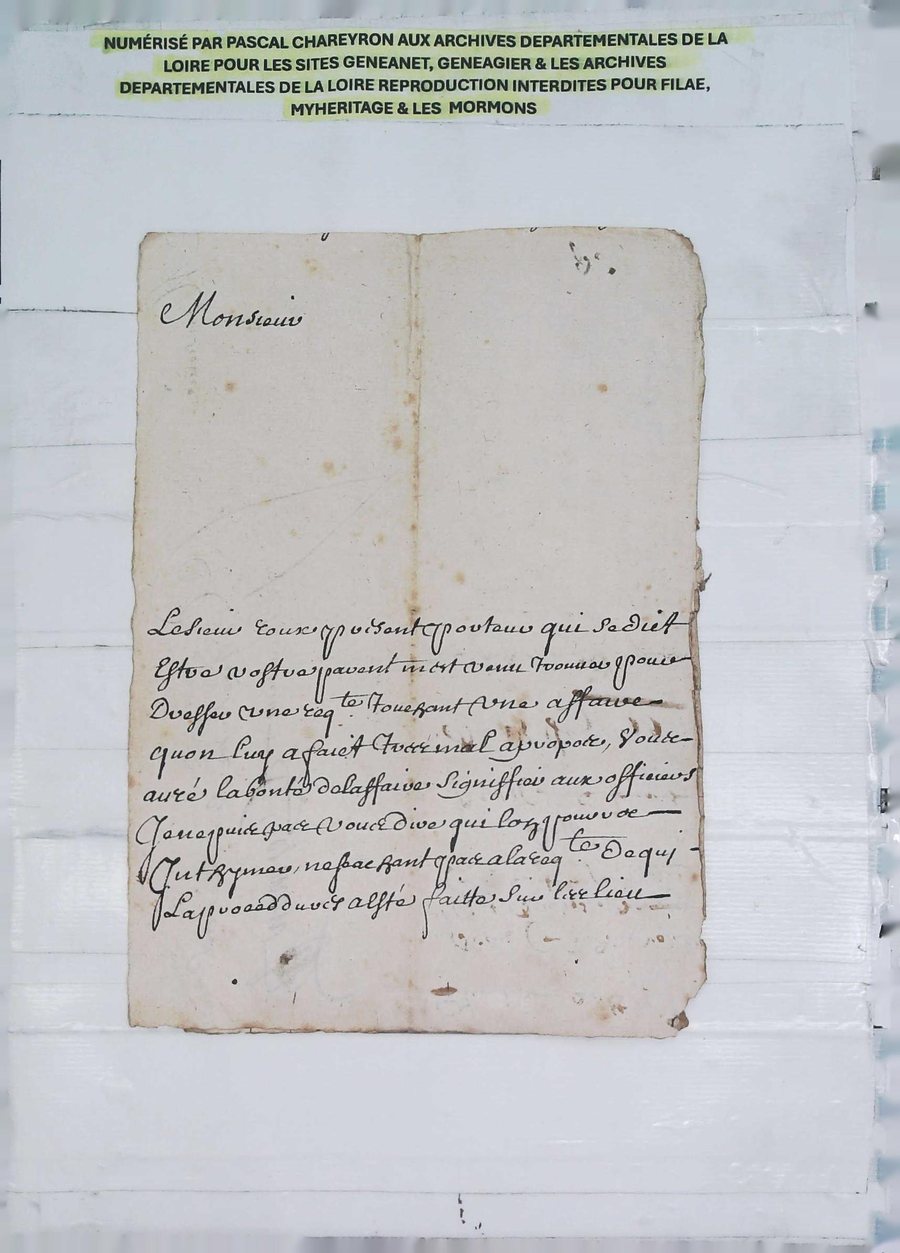 NUMÉRISÉ PAR PASCAL CHAREYRON AUX ARCHIVES DEPARTEMENTALES DE LA
LOIRE POUR LES SITES GENEANET, GENEAGIER & LES ARCHIVES
DEPARTEMENTALES DE LA LOIRE REPRODUCTION INTERDITES POUR FILAE,
MYHERITAGE & LES MORMONS
Monsieur
Le sieur roux present porteur qui se dict
Estre vostre parent mest venu trouver pour
Dresser une reqte touchant une affaire
quon luy a faict tres mal apropos, Vous
auré la bonté de laffaire signiffier aux officiers
Je ne puis pas vous dire qui lon pourroe
Inthymer, ne sachant pas a la reqte de qui
La proceddures a esté faitte sur les lieu